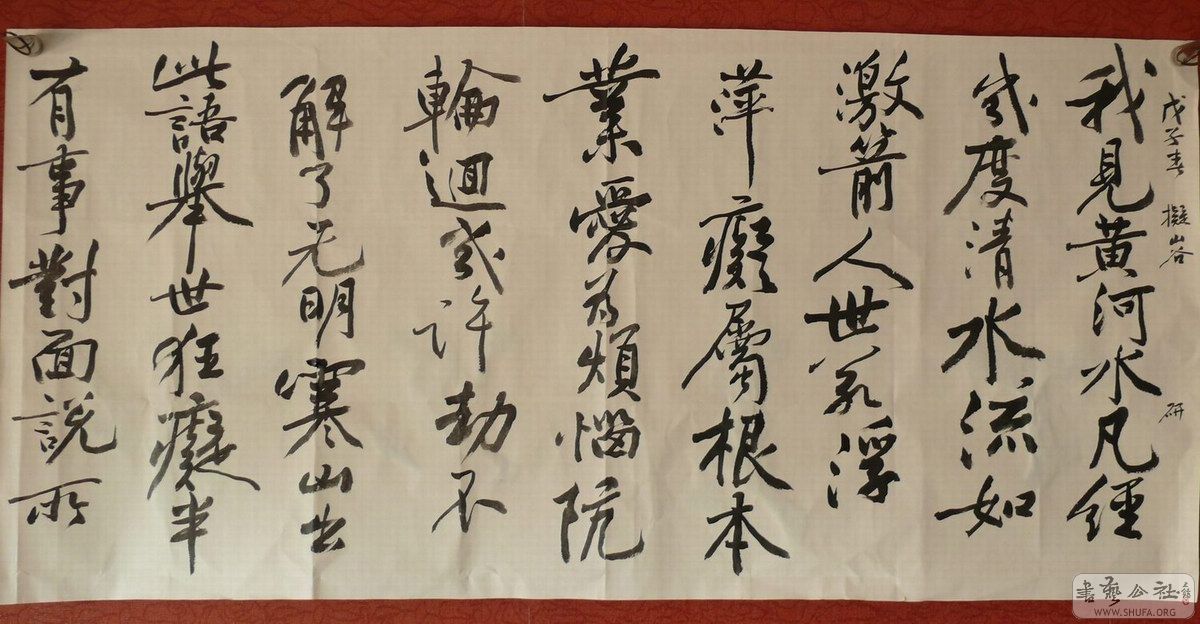 戊子春 擬山谷 研
我見黃河水凡經
幾度清水流如
激箭人世若浮
萍癡屬根本
業愛為煩惱阬
輪迴幾許劫不
解了无明寒山出
此語舉世狂癡半
有事對面說所
書藝公社
WWW.SHUFA.ORG